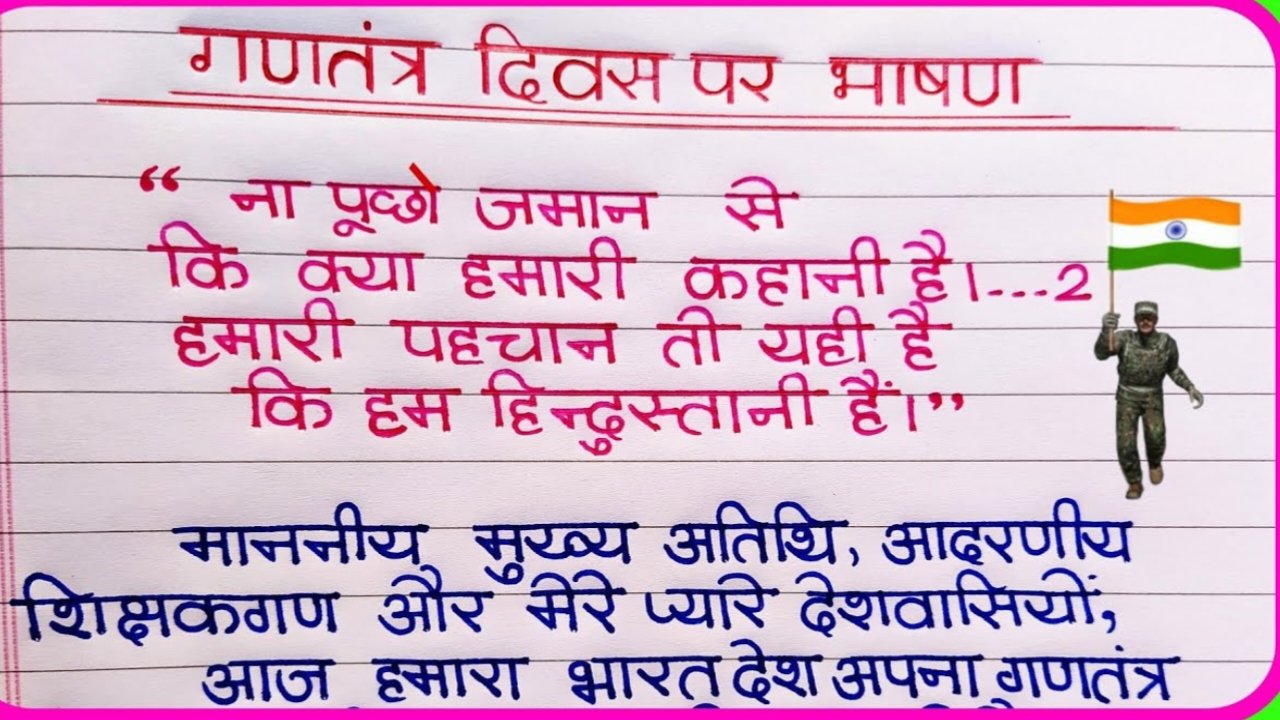 गणतंत्र दिवस पर भाषण
“ ना पूछो जमान से
कि क्या हमारी कहानी है।...2
हमारी पहचान तो यही है
कि हम हिन्दुस्तानी हैं।”
माननीय मुख्य अतिथि, आदरणीय
शिक्षकगण और मेरे प्यारे देशवासियों,
आज हमारा भारत देश अपना गणतंत्र